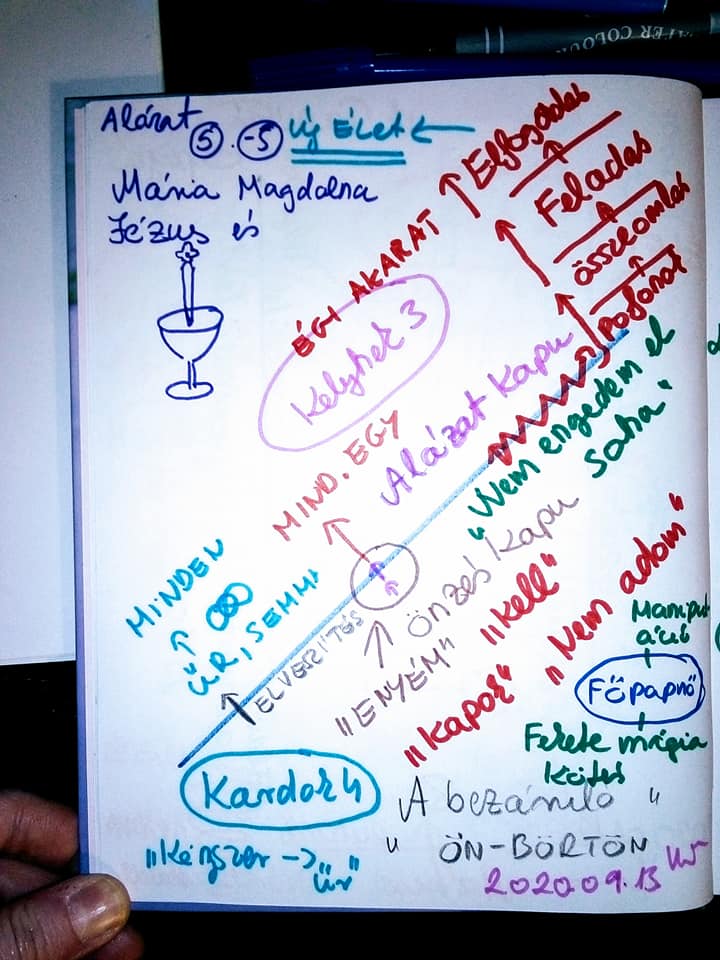 TER COLOUR
Alázat
5. -5 Új Élet ←
Mária Magdolna
Jézus és
Elfogadás
Feladás
összeomlás
Pofonok
ÉGI AKARAT
Kelyhek 3
Alázat Kapu
MIND.EGY
"Nem engedem el
soha"
MINDEN
ŰR, SEMMI
ELVESZÍTÉS
Önzés Kapu
"ENYÉM" "Kell"
"Kapok" "Nem adom"
Manipul
áció
Főpapnő
Fekete mágia
Kötés
Kardok 4
"A bezáruló"
"ÖN-BÖRTÖN
"Kényszer → "űr"
2020.09.13